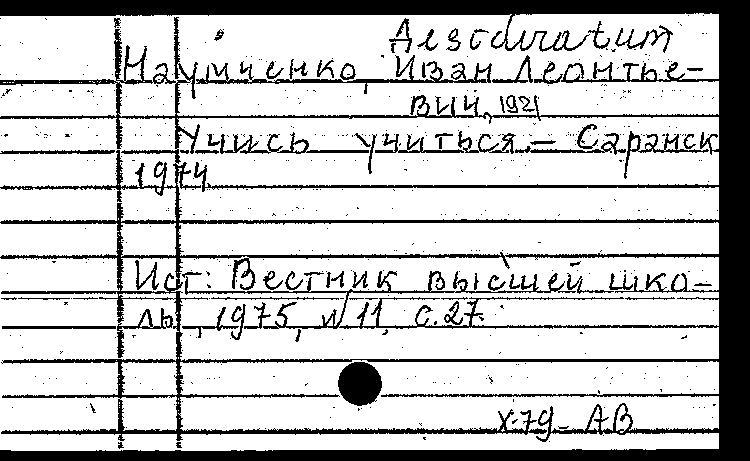 Desideratum
Наумченко, Иван Леонтье-
вич, 1921
Учись учиться. — Саранск
1974
Ист.: Вестник высшей шко-
лы, 1975, № 11, с. 27.
X-79 - АВ